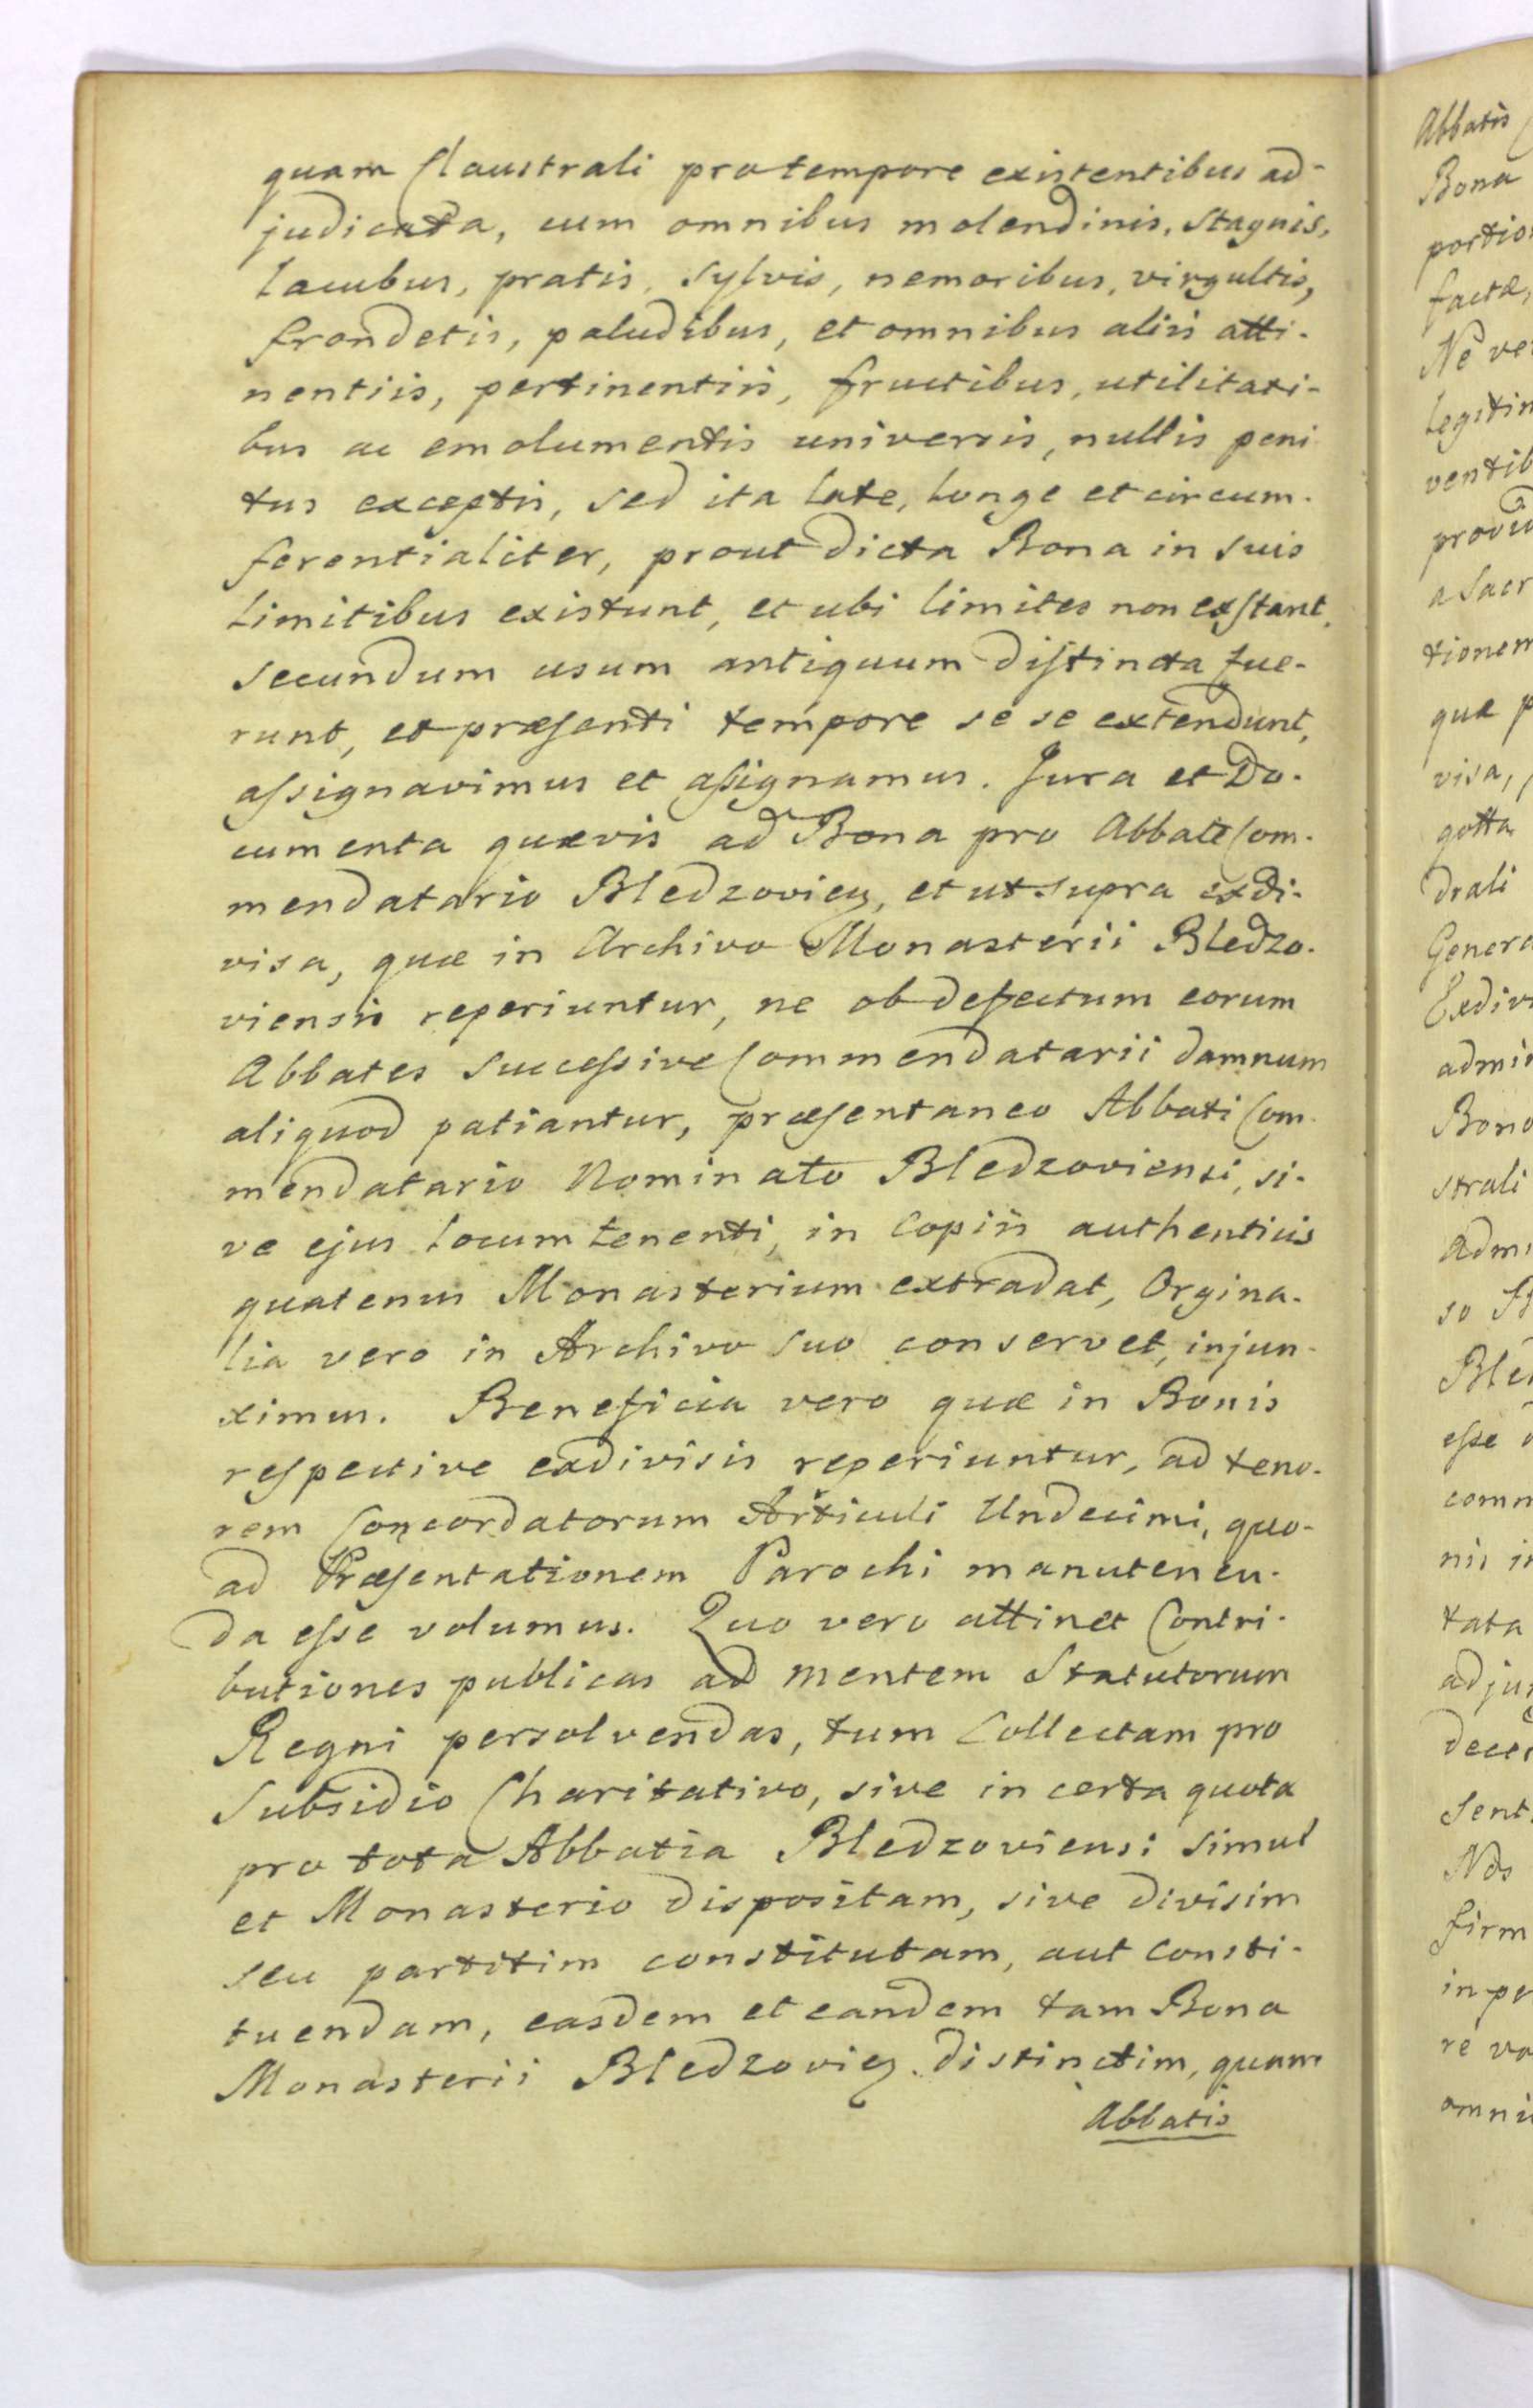 quam Claustrali pro tempore existentibus ad-
judicata, cum omnibus molendinis, Stagnis,
lacubus, pratis, Sylvis, nemoribus, virgultis,
frondetis, paludibus, et omnibus aliis atti-
nentiis, pertinentiis, fructibus, utilitati-
bus ac emolumentis universis, nullis peni
tus exceptis, sed ita late, longe et circum-
ferentialiter, prout dicta Bona in suis
Limitibus existunt, et ubi limites non exstant,
secundum usum antiquum distincta fue-
runt, et præsenti tempore se se extendunt,
assignavimus et assignamus. Jura et Do-
cumenta quævis ad Bona pro Abbate Com-
mendatario Bledzovien, et ut supra exdi-
visa, quæ in Archivo Monasterii Bledzo-
viensis reperiuntur, ne ob defectum eorum
Abbates successive Commendatarii damnum
aliquod patiantur, præsentaneo Abbati Com-
mendatario Nominato Bledzoviensi, si-
ve ejus locum tenenti, in Copiis authenticis
quatenus Monasterium extradat, Orgina-
lia vero in Archivo suo conservet, injun-
ximus. Beneficia vero quæ in Bonis
respective exdivisis reperiuntur, ad teno-
rem Concordatorum Articuli Undecimi, quo-
ad Præsentationem Parochi manutenen-
da esse volumus. Quo vero attinet Contri-
butiones publicas ad mentem Statutorum
Regni persolvendas, tum Collectam pro
Subsidio Charitativo, sive in certa quota
pro tota Abbatia Bledzoviensi simul
et Monasterio dispositam, sive divisim
seu partitim constitutam, aut Consti-
tuendam, easdem et eandem tam Bona
Monasterii Bledzovien. distinctim, quam
Abbatis
Abbatis
Bona
portio
factæ,
Ne ve
Legitim
ventib
a Sacr
tionem
quæ p
visa,
gotta
drali
Genera
Exdiv
admi
Bono
strali
Admi
so
Ble
esse
comm
nis i
tata
adju
dece
Sent
Nos
firm
in pe
re vo
omni